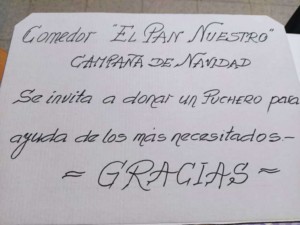 Comedor "El Pan Nuestro"
CAMPAÑA DE NAVIDAD
Se invita a donar un PUCHERO para
ayuda de los más necesitados.-
= GRACIAS =